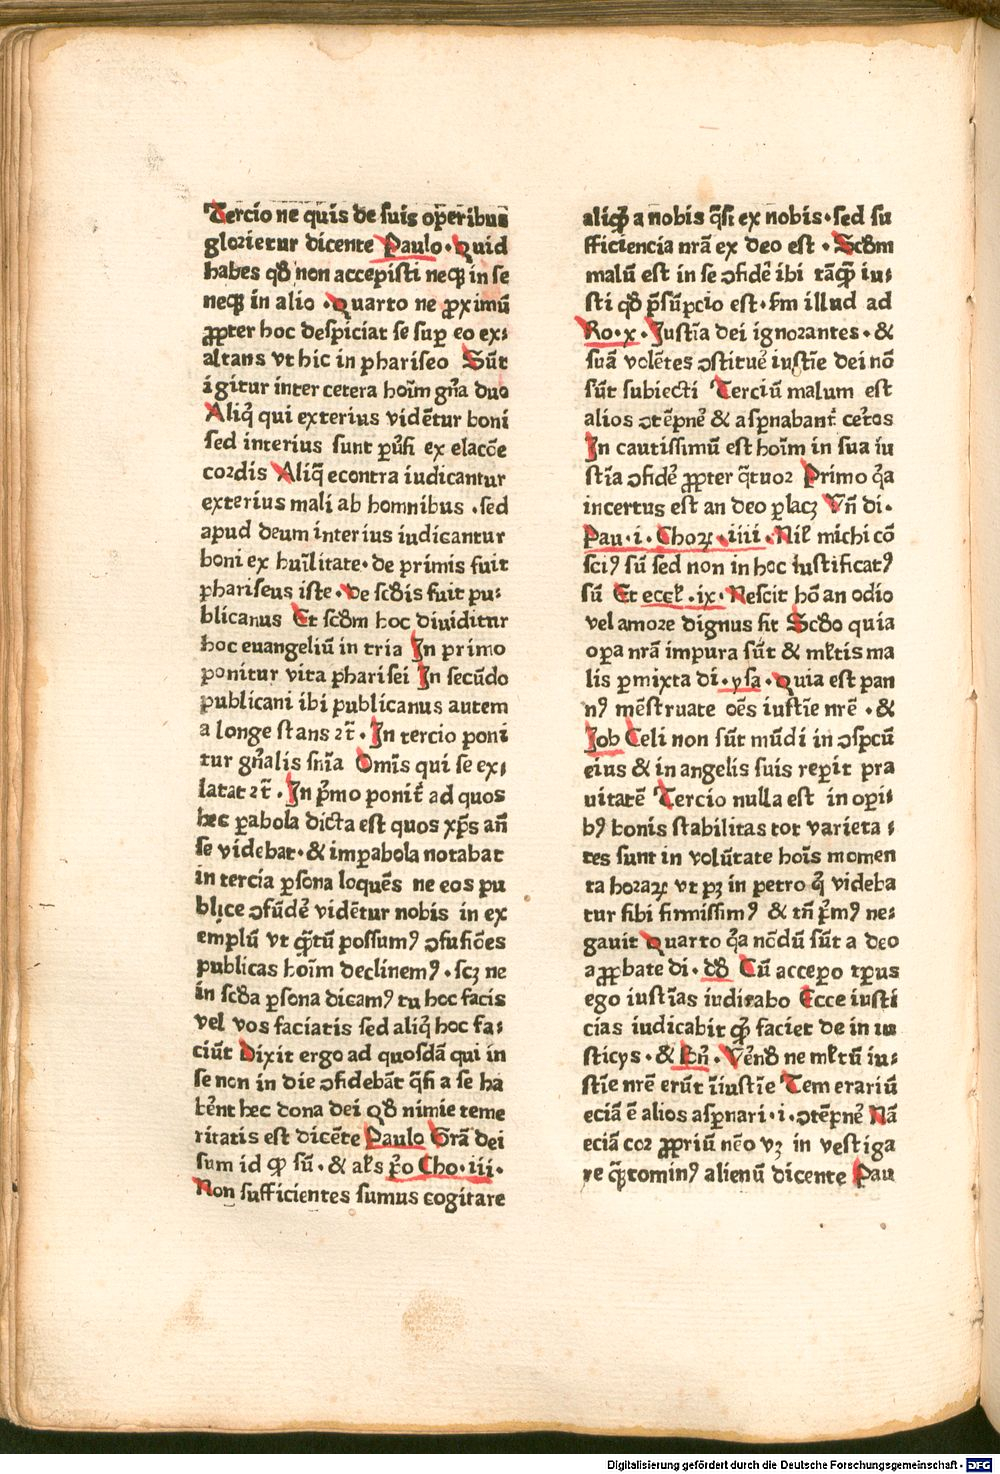 Tercio ne quis de suis operibus
glorietur dicente Paulo · Quid
habes qđ non accepisti neqꝫ in se
neqꝫ in alio · Quarto ne ꝓximū
ꝓpter hoc despiciat se suꝑ eo ex⸗
altans vt hic in phariseo Sūt
igitur inter cetera hoīm gn̄a duo
Aliq̄ qui exterius vidētur boni
sed interius sunt ꝑūsi ex elacōe
cordis Aliq̄ econtra iudicantur
exterius mali ab homnibus · sed
apud deum interius iudicantur
boni ex huīlitate · de primis fuit
phariseus iste · De scđis fuit pu⸗
blicanus Et scđm hoc diuiditur
hoc euangeliū in tria In primo
ponitur vita pharisei In secūdo
publicani ibi publicanus autem
a longe stans ⁊c̄ · In tercio poni
tur gn̄alis sn̄ia Omīs qui se ex⸗
latat ⁊c̄ · In p̄mo ponit̄ ad quos
hec ꝑabola dicta est quos xp̄s an̄
se videbat · & imꝑabola notabat
in tercia ꝑsona loquēs ne eos pu
blice ꝯfūdē vidētur nobis in ex
emplū vt qꝫtū possumꝰ ꝯfusiōes
publicas hoīm declinemꝰ · scꝫ ne
in scđa ꝑsona dicamꝰ tu hoc facis
vel vos faciatis sed aliq̄ hoc fa⸗
ciūt Dixit ergo ad quosdā qui in
se non in die ꝯfidebāt q̄si a se ha
bēnt hec dona dei Qđ nimie teme
ritatis est dicēte Paulo Grā dei
sum id qꝫ sū · & alꝭ p̄o Cho · iii ·
Non sufficientes sumus cogitare
aliqꝫ a nobis q̄si ex nobis · sed su
fficiencia nrā ex deo est · Scđm
malū est in se ꝯfidē ibi tāqꝫ iu⸗
sti qđ p̄sūpcio est · fm illud ad
Ro · x · Justīa dei ignorantes · &
suā volētes ꝯstituē iustīe dei nō
sūt subiecti Terciū malum est
alios ꝯtēpnē & asꝑnabant̄ cet̄os
In cautissimū est hoīm in sua iu
stīa ꝯfidē ꝓpter q̄tuor Primo q̄a
incertus est an deo placꝫ Vn̄ di ·
Pau · i · Choꝝ · iiii · Nil michi cō
sciꝰ sū sed non in hoc iustificatꝰ
sū Et eccl · ix · Nescit hō an odio
vel amore dignus sit Scđo quia
oꝑa nrā impura sūt & mltis ma
lis ꝑmixta di · ysa · Quia est pan
nꝰ mēstruate oēs iustīe nrē · &
Job Celi non sūt mūdi in ꝯsp̄cū
eius & in angelis suis reꝑit pra
uitatē Tercio nulla est in oꝑi⸗
bꝰ bonis stabilitas tot varieta⸗
tes sunt in volūtate hoīs momen
ta horaꝝ vt pꝫ in petro q̄ videba
tur sibi firmissimꝰ & tn̄ p̄mꝰ ne⸗
gauit Quarto q̄a nōdū sūt a deo
aꝓbate di · dđ Cū accepo tꝑus
ego iustīas iudicabo Ecce iusti
cias iudicabit qꝫ faciet de in iu
sticys · & bn̄ · Vēnđ ne mltū iu⸗
stīe nrē erūt īiustīe Tem erariū
eciā ē alios asꝑnari · i · ꝯtēpnē Nā
eciā cor ꝓpriū nēo vꝫ in vestiga
re qꝫtominꝰ alienū dicente Pau
Digitalisierung gefördert durch die Deutsche Forschungsgemeinschaft - DFG